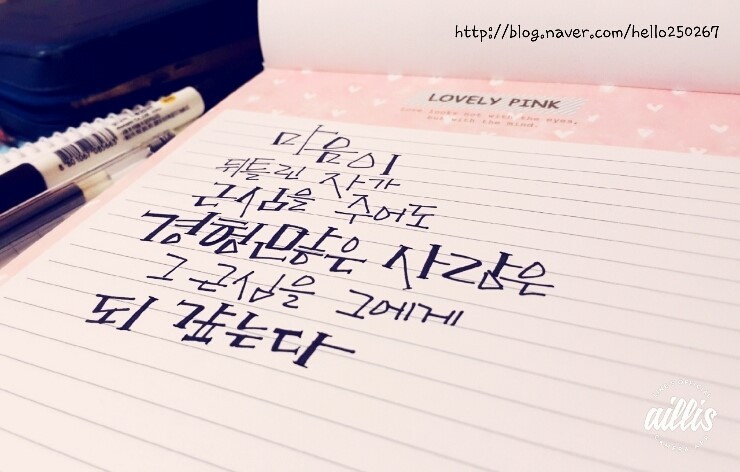 http://blog.naver.com/hello250267
LOVELY PINK
Love looks not with the eyes,
but with the mind.
마음이
뒤틀린 자가
근심을 주어도
경험많은 사람은
그 근심을 그에게
되 갚는다
aillis